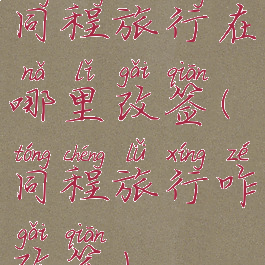 同程旅行在
nǎ lǐ gǎi qiān
哪里改签(
tóng chéng lǚ xíng zé
同程旅行咋
gǎi qiān
改签)